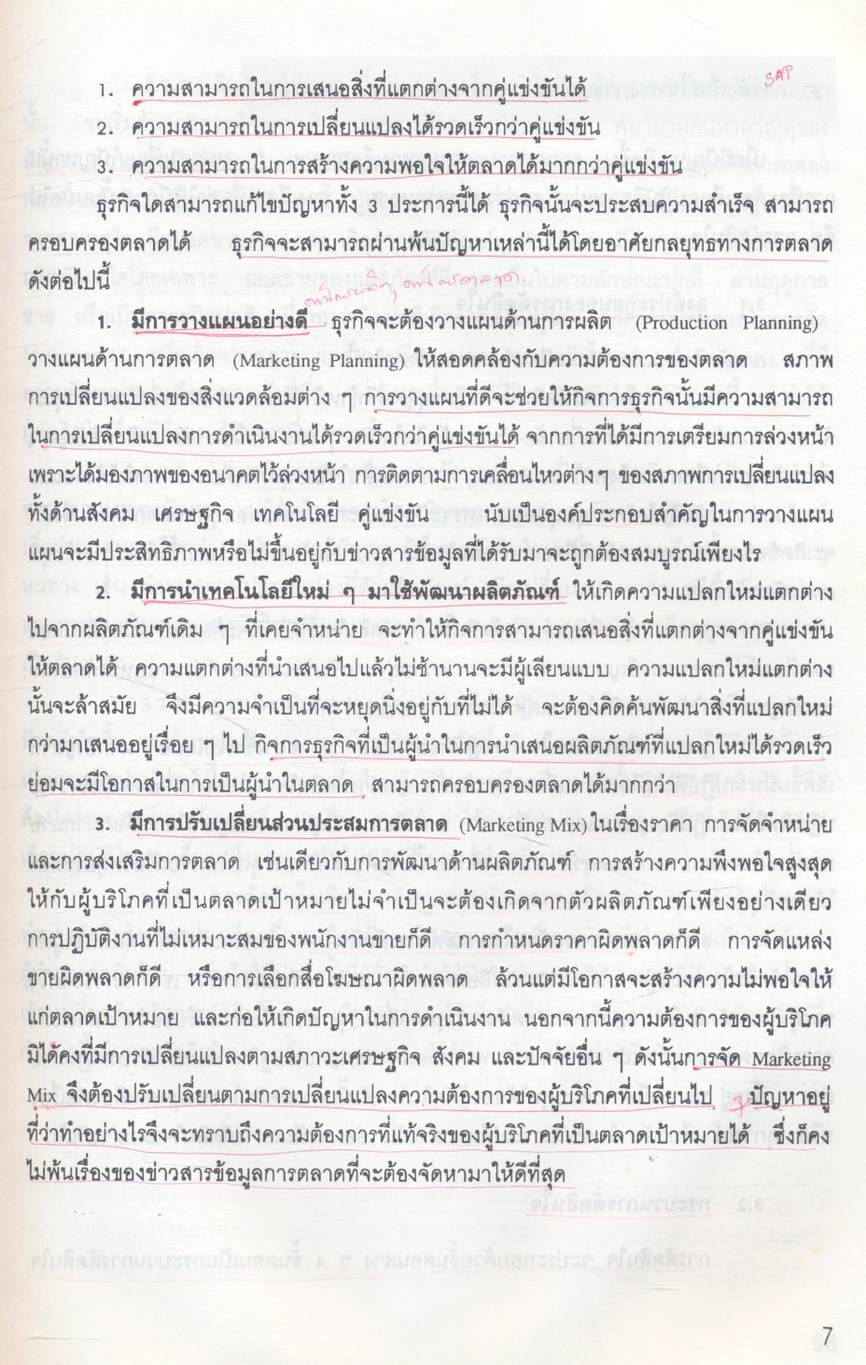 SAP
1. ความสามารถในการเสนอสิ่งที่แตกต่างจากคู่แข่งขันได้
2. ความสามารถในการเปลี่ยนแปลงได้รวดเร็วกว่าคู่แข่งขัน
3. ความสามารถในการสร้างความพอใจให้ตลาดได้มากกว่าคู่แข่งขัน
ธุรกิจใดสามารถแก้ไขปัญหาทั้ง 3 ประการนี้ได้ ธุรกิจนั้นจะประสบความสำเร็จ สามารถ
ครอบครองตลาดได้ ธุรกิจจะสามารถผ่านพ้นปัญหาเหล่านี้ได้โดยอาศัยกลยุทธทางการตลาด
ดังต่อไปนี้
1. มีการวางแผนอย่างดี ธุรกิจจะต้องวางแผนด้านการผลิต (Production Planning)
วางแผนด้านการตลาด (Marketing Planning) ให้สอดคล้องกับความต้องการของตลาด สภาพ
การเปลี่ยนแปลงของสิ่งแวดล้อมต่าง ๆ การวางแผนที่ดีจะช่วยให้กิจการธุรกิจนั้นมีความสามารถ
ในการเปลี่ยนแปลงการดำเนินงานได้รวดเร็วกว่าคู่แข่งขันได้ จากการที่ได้มีการเตรียมการล่วงหน้า
เพราะได้มองภาพของอนาคตไว้ล่วงหน้า การติดตามการเคลื่อนไหวต่างๆ ของสภาพการเปลี่ยนแปลง
ทั้งด้านสังคม เศรษฐกิจ เทคโนโลยี คู่แข่งขัน นับเป็นองค์ประกอบสำคัญในการวางแผน
แผนจะมีประสิทธิภาพหรือไม่ขึ้นอยู่กับข่าวสารข้อมูลที่ได้รับมาจะถูกต้องสมบูรณ์เพียงไร
2. มีการนำเทคโนโลยีใหม่ ๆ มาใช้พัฒนาผลิตภัณฑ์ ให้เกิดความแปลกใหม่แตกต่าง
ไปจากผลิตภัณฑ์เดิม ๆ ที่เคยจำหน่าย จะทำให้กิจการสามารถเสนอสิ่งที่แตกต่างจากคู่แข่งขัน
ให้ตลาดได้ ความแตกต่างที่นำเสนอไปแล้วไม่ช้านานจะมีผู้เลียนแบบ ความแปลกใหม่แตกต่าง
นั้นจะล้าสมัย จึงมีความจำเป็นที่จะหยุดนิ่งอยู่กับที่ไม่ได้ จะต้องคิดค้นพัฒนาสิ่งที่แปลกใหม่
กว่ามาเสนออยู่เรื่อย ๆ ไป กิจการธุรกิจที่เป็นผู้นำในการนำเสนอผลิตภัณฑ์ที่แปลกใหม่ได้รวดเร็ว
ย่อมจะมีโอกาสในการเป็นผู้นำในตลาด สามารถครอบครองตลาดได้มากกว่า
3. มีการปรับเปลี่ยนส่วนประสมการตลาด (Marketing Mix) ในเรื่องราคา การจัดจำหน่าย
และการส่งเสริมการตลาด เช่นเดียวกับการพัฒนาด้านผลิตภัณฑ์ การสร้างความพึงพอใจสูงสุด
ให้กับผู้บริโภคที่เป็นตลาดเป้าหมายไม่จำเป็นจะต้องเกิดจากตัวผลิตภัณฑ์เพียงอย่างเดียว
การปฏิบัติงานที่ไม่เหมาะสมของพนักงานขายก็ดี การกำหนดราคาผิดพลาดก็ดี การจัดแหล่ง
ขายผิดพลาดก็ดี หรือการเลือกสื่อโฆษณาผิดพลาด ล้วนแต่มีโอกาสจะสร้างความไม่พอใจให้
แก่ตลาดเป้าหมาย และก่อให้เกิดปัญหาในการดำเนินงาน นอกจากนี้ความต้องการของผู้บริโภค
มิได้คงที่มีการเปลี่ยนแปลงตามสภาวะเศรษฐกิจ สังคม และปัจจัยอื่น ๆ ดังนั้นการจัด Marketing
Mix จึงต้องปรับเปลี่ยนตามการเปลี่ยนแปลงความต้องการของผู้บริโภคที่เปลี่ยนไป ปัญหาอยู่
ที่ว่าทำอย่างไรจึงจะทราบถึงความต้องการที่แท้จริงของผู้บริโภคที่เป็นตลาดเป้าหมายได้ ซึ่งก็คง
ไม่พ้นเรื่องของข่าวสารข้อมูลการตลาดที่จะต้องจัดหามาให้ดีที่สุด
7